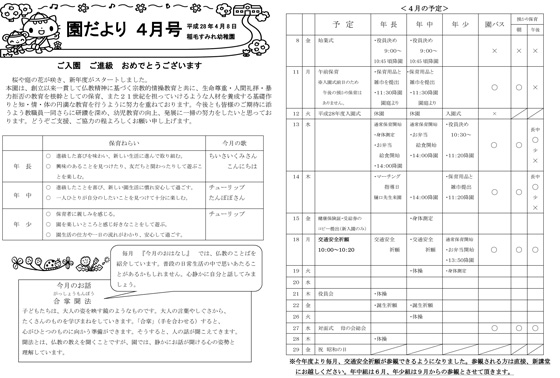 園だより 4月号
平成28年4月8日
稲毛すみれ幼稚園
ご入園 ご進級 おめでとうございます
桜や庭の花が咲き、新年度がスタートしました。
本園は、創立以来一貫して仏教精神に基づく宗教的情操教育と共に、生命尊重・人間礼拝・暴
力拒否の教育を根幹としての保育、また21世紀を担っていけるような人材を養成する基礎作
りと知・情・体の円満な教育を行うように努力を重ねております。今後とも皆様のご期待に添
うよう教職員一同さらに研鑽を深め、幼児教育の向上、発展に一層の努力をしたいと思ってお
ります。どうぞご支援、ご協力の程よろしくお願い申し上げます。
保育ねらい 今月の歌
年 長
○ 進級した喜びを味わい、新しい生活に進んで取り組む。
○ 興味のあることを見つけたり、友だちと関わったりして遊ぶことを楽しむ。
ちいさいくみさん
こんにちは
年 中
○ 進級したことを喜び、新しい園生活に慣れ安心して過ごす。
○ 一人ひとりが自分のしたいことを見つけて十分に楽しむ。
チューリップ
たんぽぽさん
年 少
○ 保育者に親しみを感じる。
○ 園を楽しいところと感じ好きなことをして遊ぶ。
○ 園生活の仕方や一日の流れがわかり、安心して過ごす。
チューリップ
毎月 『今月のおはなし』 では、仏教のことばを
紹介しています。普段の日常生活の中で思いあたるこ
とがあるかもしれません。心静かに自分と話してみま
しょう。
今月のお話
がっしょうもんぽう
合掌聞法
子どもたちは、大人の姿を映す鏡のようなものです。大人の言葉やしぐさから、
たくさんのものを学びまねをしていきます。「合掌」(手を合わせる)すると、
心がひとつのものに向かう準備ができます。そうすると、人の話が聞こえてきます。
聞法とは、仏の教えを聞くことですが、園では、静かにお話が聞ける心の姿勢と
理解しています。
<4月の予定>
予 定 年 長 年 中 年 少 園バス
8 金 始業式 ・役員決め 9:00~ 10:45 頃降園 ・役員決め 9:00~ 10:45 頃降園 × × ×
11 月 午前保育
・保育用品と
・11:30降園
○ ○ ×
12 火 平成28年度入園式 休園 休園 入園式 ×
13 水 ・身体測定 ・お弁当 給食開始 ・14:00降園
・お弁当 給食開始 ・14:00降園
・役員決め 10:30~ ・11:20降園
14 木 ・マーチング 指導日 樋口先生来園
・14:00降園
・保育用品と ・11:20降園
15 金 ・身体測定
18 月 交通安全祈願 10:00~10:20
交通安全 祈願 交通安全 祈願
・お弁当 給食開始 ・13:50降園
○ ○ ○
19 火 ・体操 ・身体測定
20 水
21 木 役員会 ・体操
22 金 ・誕生祈願 ・誕生祈願
26 火 ・体操
27 水 対面式 母の会総会 ○ ○ ○
28 木 ・体操
29 金 祝 昭和の日
※今年度より毎月、交通安全祈願が参観できるようになりました。参観される方は直接、新講堂
にお越しください。年中組は6月、年少組は9月からの参観とさせて頂きます。